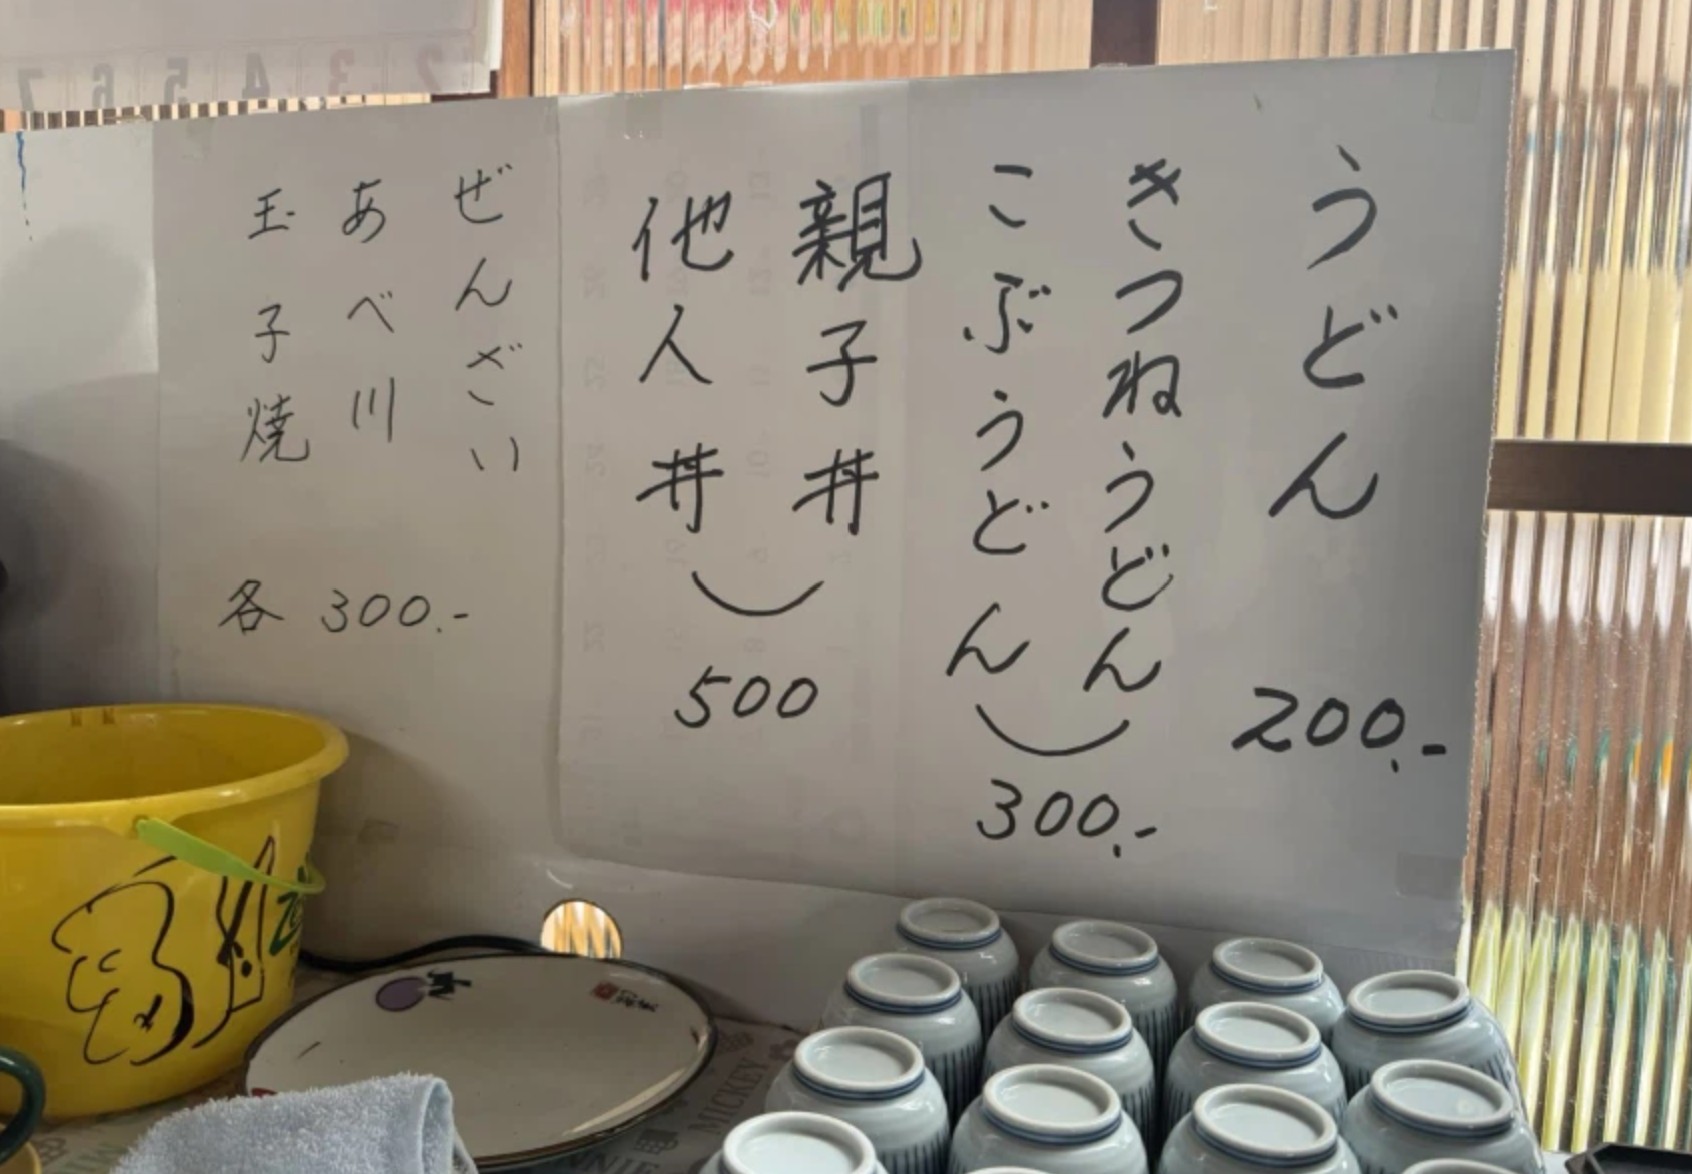 うどん
200.-
きつねうどん
こぶうどん
300.-
親子丼
他人丼
500
ぜんざい
あべ川
玉子焼
各 300.-
2 3 4 5 6 7
MICKEY